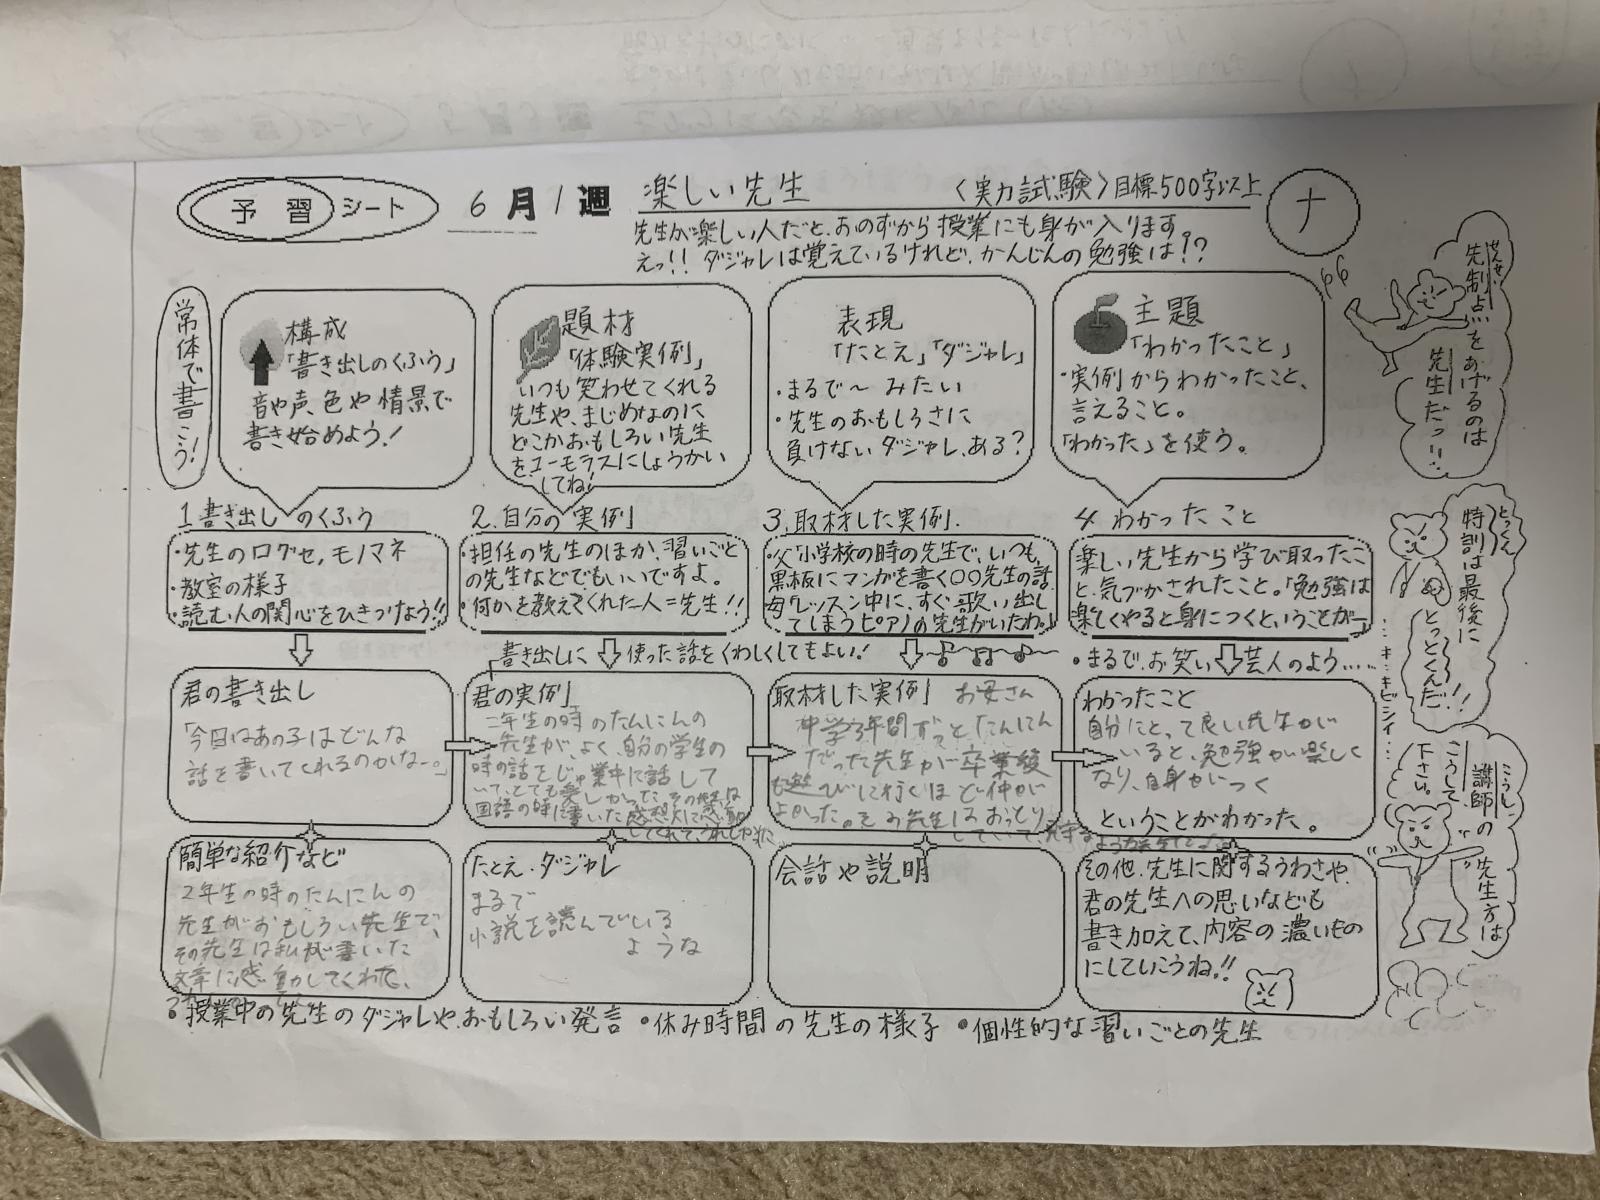 予習シート
6月1週
楽しい先生
〈実力試験〉目標500字以上
ナ
先生が楽しい人だと、おのずから授業にも身が入ります。
えっ!! ダジャレは覚えているけれど、かんじんの勉強は!?
常体で書こう!
構成
「書き出しのくふう」
音や声、色や情景で
書き始めよう!
題材
「体験実例」
いつも笑わせてくれる
先生や、まじめなのに
どこかおもしろい先生
をユーモラスにしょうかい
してね!
表現
「たとえ」「ダジャレ」
・まるで〜みたい
・先生のおもしろさに
負けないダジャレ、ある?
主題
「わかったこと」
・実例からわかったこと、
言えること。
「わかった」を使う。
先制点をあげるのは
先生だっ!!
1 書き出しのくふう
・先生の口グセ,モノマネ
・教室の様子
・読む人の関心をひきつけよう!!
2.自分の実例
・担任の先生のほか、習いごと
の先生などでもいいですよ。
・何かを教えてくれた人=先生!!
3.取材した実例.
・父「小学校の時の先生で、いつも
黒板にマンガを書く〇〇先生の話
母「レッスン中に、すぐ歌い出し
てしまうピアノの先生がいたわ。」
4 わかったこと
楽しい先生から学び取ったこ
と、気づかされたこと。「勉強は
楽しくやると身につくということが―
特訓は最後に
とっとくんだ!!
とっくん
書き出しに使った話をくわしくしてもよい!
・まるで、お笑い芸人のよう……
君の書き出し
「今日はあの子はどんな
話を書いてくれるのかなー。」
君の実例
二年生の時のたんにんの
先生が、よく、自分の学生の
時の話をじゅ業中に話して
いて、とても楽しかった。その先生は
国語の時に書いた感想文に感動
してくれて、うれしかった。
取材した実例 お母さん
中学3年間ずっとたんにん
だった先生が卒業後
も遊びに行くほど仲が
よかった。その先生はおっとり
していて、
わかったこと
自分にとって良い先生が
いると、勉強が楽しく
なり、自身がつく
ということがわかった。
簡単な紹介など
2年生の時のたんにんの
先生がおもしろい先生で、
その先生は私が書いた
文章に感動してくれた、
たとえ・ダジャレ
まるで
小説を読んでいる
ような
会話や説明
その他、先生に関するうわさや、
君の先生への思いなども
書き加えて、内容の濃いもの
にしていこうね!!
こうし
講師の先生方は
こうして
下さい。
・授業中の先生のダジャレや、おもしろい発言 ・休み時間の先生の様子 ・個性的な習いごとの先生